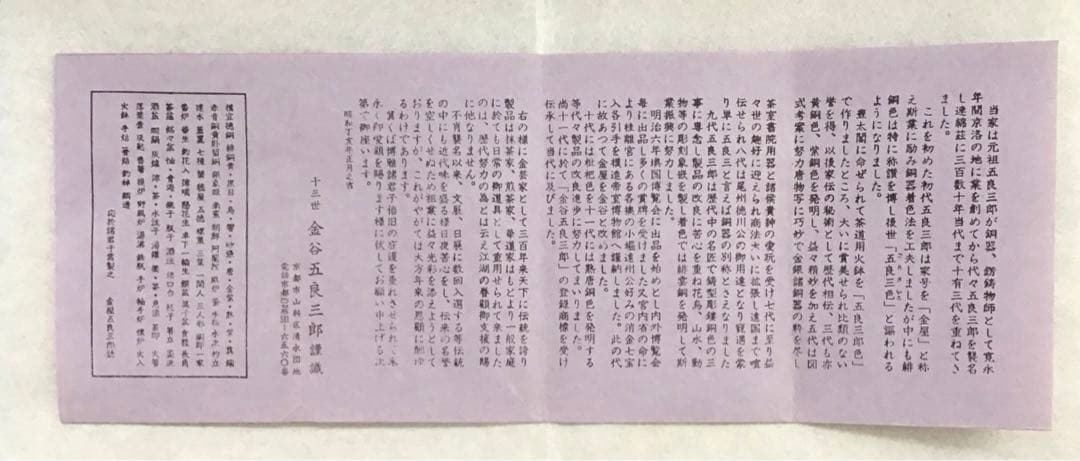 当家は元祖五良三郎が銅器、鋳物師として寛永
年間京洛の地に業を創めてから代々五良三郎を襲名
し連綿茲に三百数十年当代まで十有三代を重ねてき
ました。
これを初めた初代五良三郎は家号を「金屋」と称
え斯業に励み銅器着色法を工夫しましたが中にも緋
銅色は特に称讃を博し後世「五良三色」と謳われる
ようになりました。
豊太閤に命ぜられて茶道用火鉢を「五良三郎色」
で作りましたところ、大いに賞美せられ比類のない
誉を得、以後家伝の秘術として歴代相伝、三代も亦
黄銅色、紫銅色を発明し、益々精妙を加え五代は図
式考案に努力唐物写に巧妙で金銀諸銅器の粋を尽し
茶室書院用器と諸侯貴紳の愛玩を受け七代に至り益
々世の趣好に迎えられ商法大いに拡張し遠国まで喧
伝せられ八代は尾州徳川公の御用達となり寵遇を蒙
り単に五良三と言えば銅器の別称とさえなりました
九代五良三郎は歴代中の名匠で鋳型彫鏤銅色の三
事に専念し製品の改良に苦心を重ね花鳥、山水、動
物等の彫刻象嵌を製し着色では緋雲銅を発明して斯
業振興に努力しました。
明治六年墺国博覧会に出品を始めとし内外博覧会
毎に出品し多くの賞牌を受けました又宮内省の命に
より桂離宮にある各襖の小堀遠州公好みの消金七宝
入各引手を模造帝室博物館に納入しました。此の代
に故あつて金屋を金谷と改めました。
十代には枇杷色を十一代には熟唐銅色を発明する
等代々製品の改良進歩に努力してまいりました。
尚十一代に於て「金谷五良三郎」の登録商標を受け
伝承して当代に及びました。
右の様に金芸家として三百年来天下に伝統を誇り
製品は抹茶家、煎茶家、華道家はもとより一般家庭
に於ても日常の御道具として重用せられて来ました
のは、歴代努力の為とは云え江湖の眷顧御支援の賜
に他なりません。
不肖襲名以来、文展、日展に数回入選する等伝統
の中にも近代味を盛る様日夜苦心をし、伝来の名誉
を空しくせぬため祖業に益々光彩を添えようとして
おりますが、これがやがては大方年来の恩顧に酬ゆ
るわけであります。
冀くば博雅諸君子倍旧の庇護を垂れさせられ末
永く御愛顧を賜ります様に伏してお願い申上げる次
第で御座います。
昭和丁亥年正月之吉
十三世 金谷五良三郎謹識
京都市山科区清水団地
金屋五良三郎誌